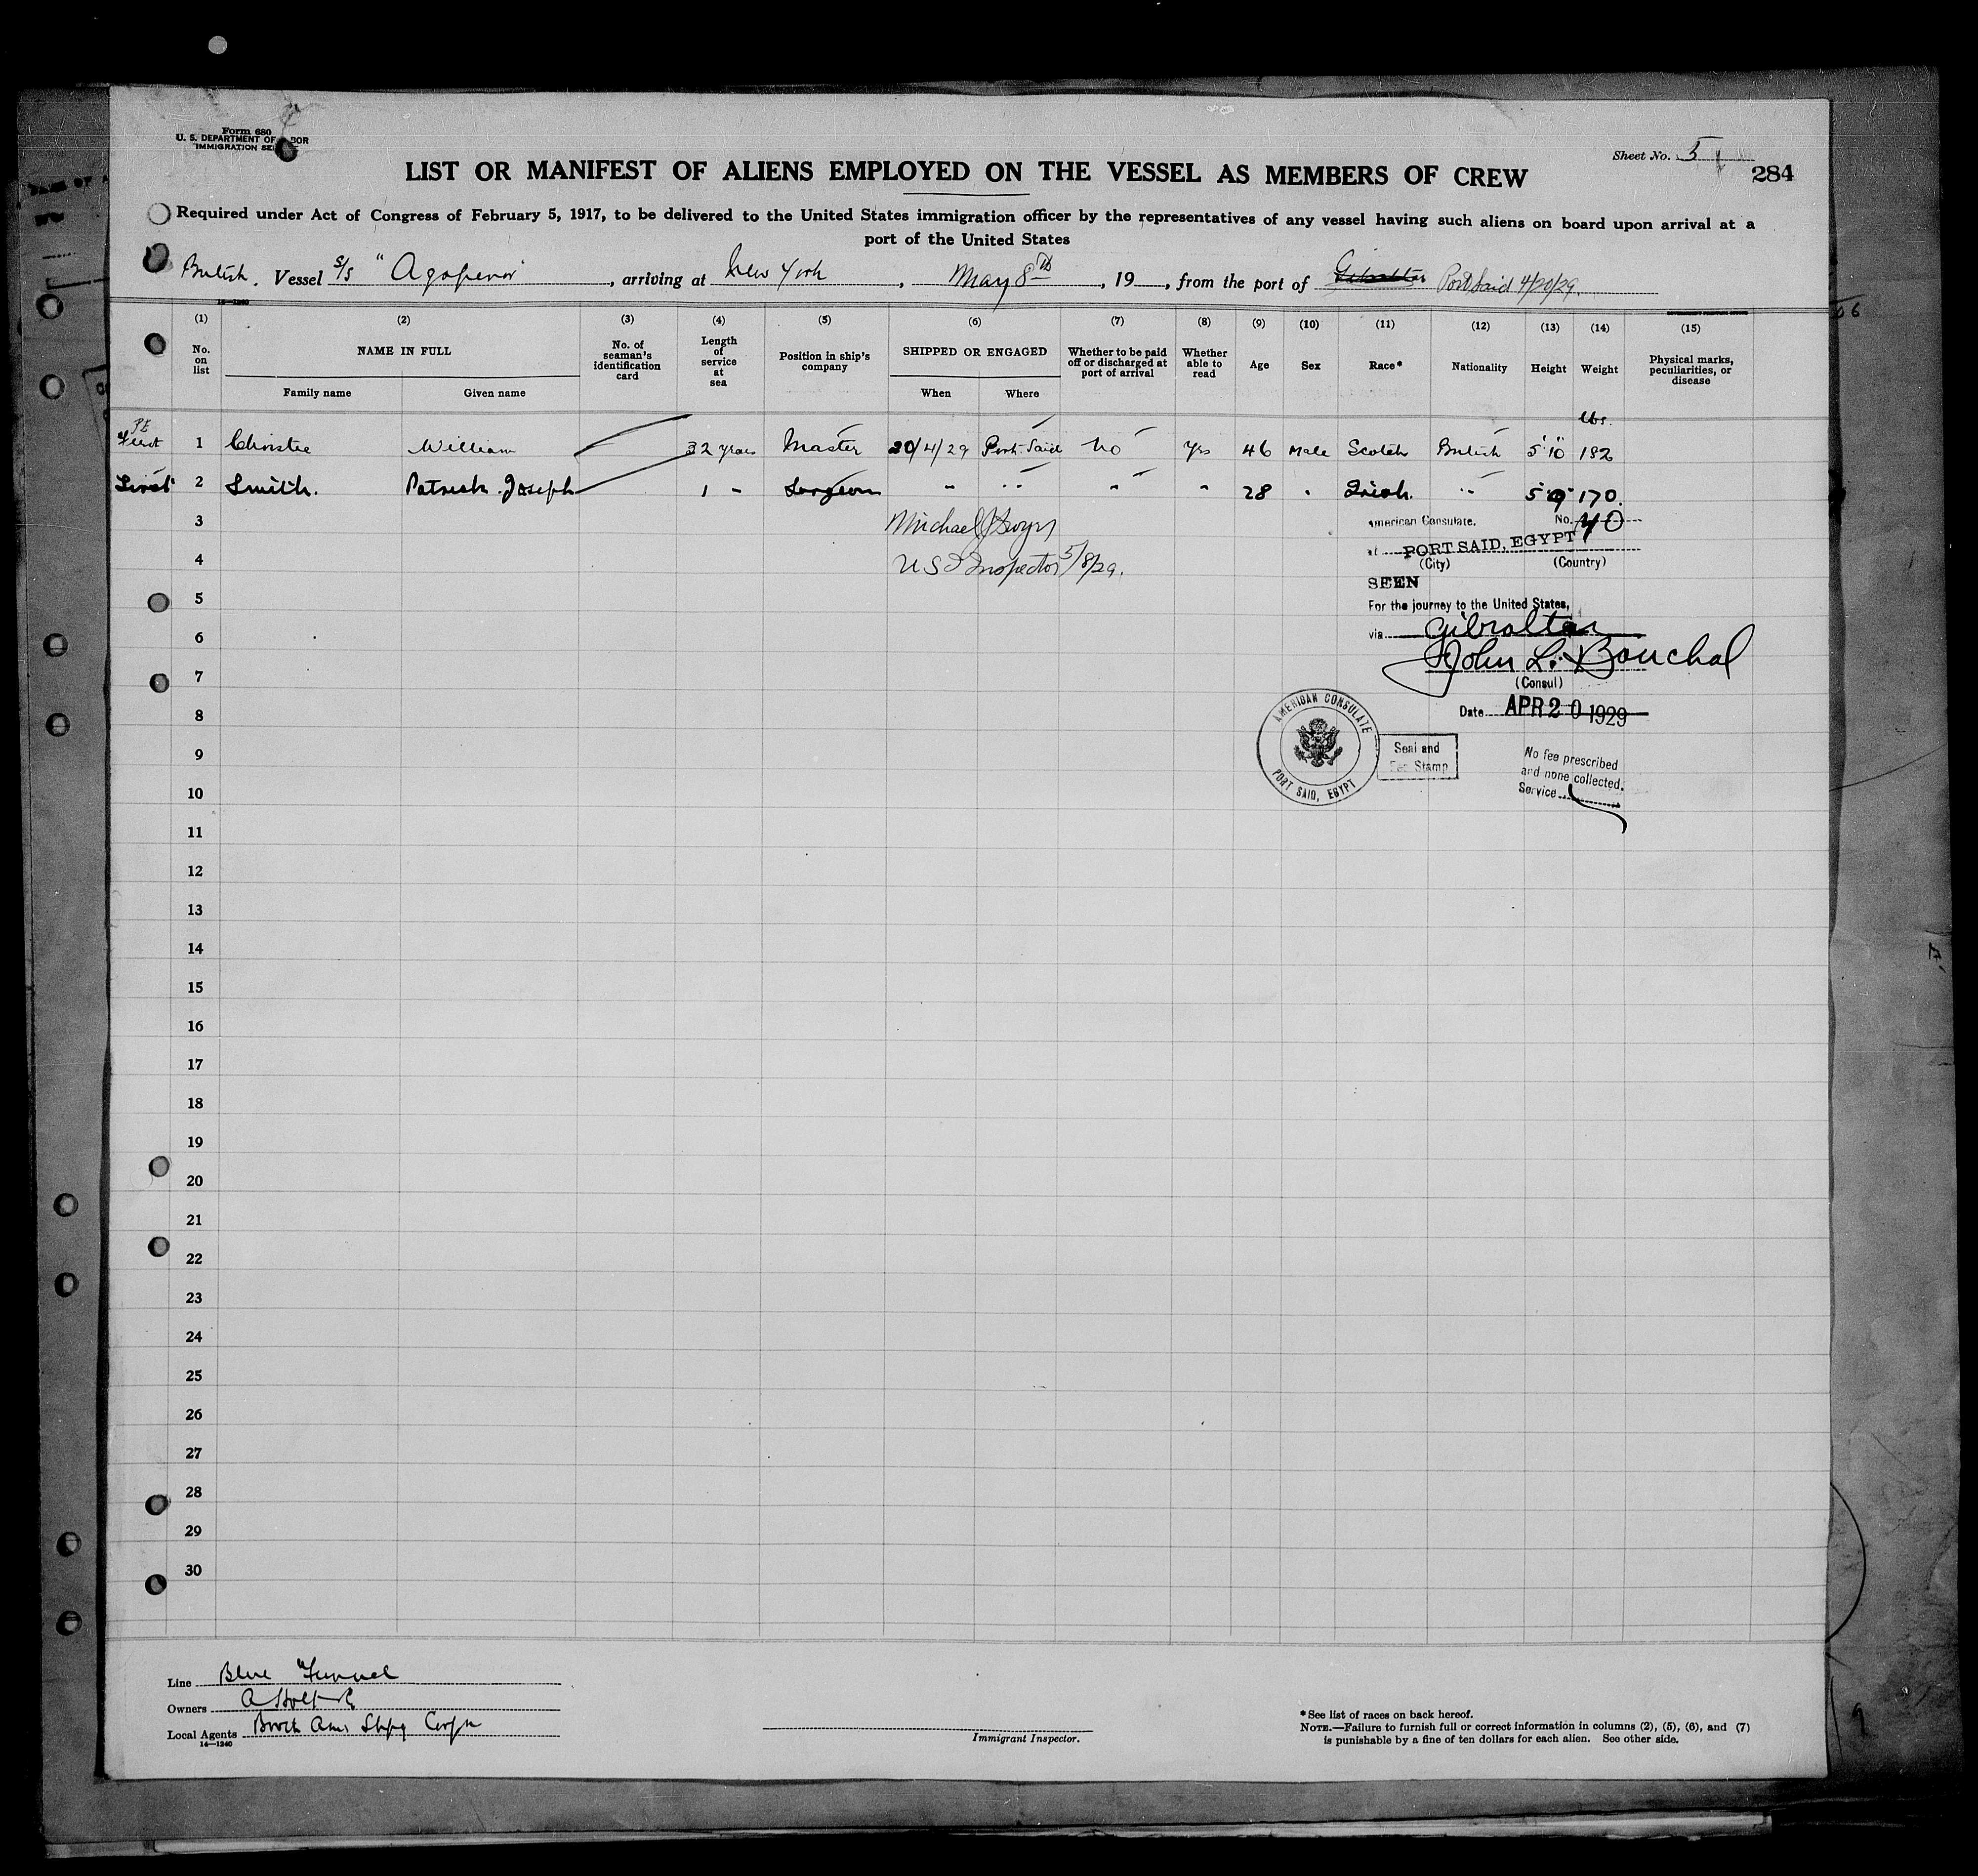 Form 680
U. S. DEPARTMENT OF LABOR
IMMIGRATION SERVICE
Sheet No. 5
284
LIST OR MANIFEST OF ALIENS EMPLOYED ON THE VESSEL AS MEMBERS OF CREW
Required under Act of Congress of February 5, 1917, to be delivered to the United States immigration officer by the representatives of any vessel having such aliens on board upon arrival at a
port of the United States
British. Vessel S/S "Agapenor", arriving at New York, May 8th, 19__, from the port of Gibraltar Port Said 4/20/29.
(1) (2) (3) (4) (5) (6) (7) (8) (9) (10) (11) (12) (13) (14) (15)
No. on list NAME IN FULL Family name Given name No. of seaman's identification card Length of service at sea Position in ship's company SHIPPED OR ENGAGED When Where Whether to be paid off or discharged at port of arrival Whether able to read Age Sex Race* Nationality Height Weight Physical marks, peculiarities, or disease
lbs.
PE
First 1 Christie William 32 years Master 20/4/29 Port Said No Yes 46 Male Scotch British 5'10" 182
First 2 Smith. Patrick Joseph 1 " Surgeon " " " " 28 " Irish. " 5'9" 170.
3 Michael J Dwyer
4 US I Inspector 5/8/29.
American Consulate. No. 40
at PORT SAID, EGYPT
(City) (Country)
SEEN
For the journey to the United States,
via Gibraltar
John L. Bouchal
(Consul)
Date APR 20 1929
AMERICAN CONSULATE
PORT SAID, EGYPT
Seal and
Fee Stamp
No fee prescribed
and none collected.
Service
5
6
7
8
9
10
11
12
13
14
15
16
17
18
19
20
21
22
23
24
25
26
27
28
29
30
Line Blue Funnel
Owners A Holt & Co
Local Agents Booth Amn Shpg Corpn
14—1240
Immigrant Inspector.
* See list of races on back hereof.
NOTE.—Failure to furnish full or correct information in columns (2), (5), (6), and (7)
is punishable by a fine of ten dollars for each alien. See other side.